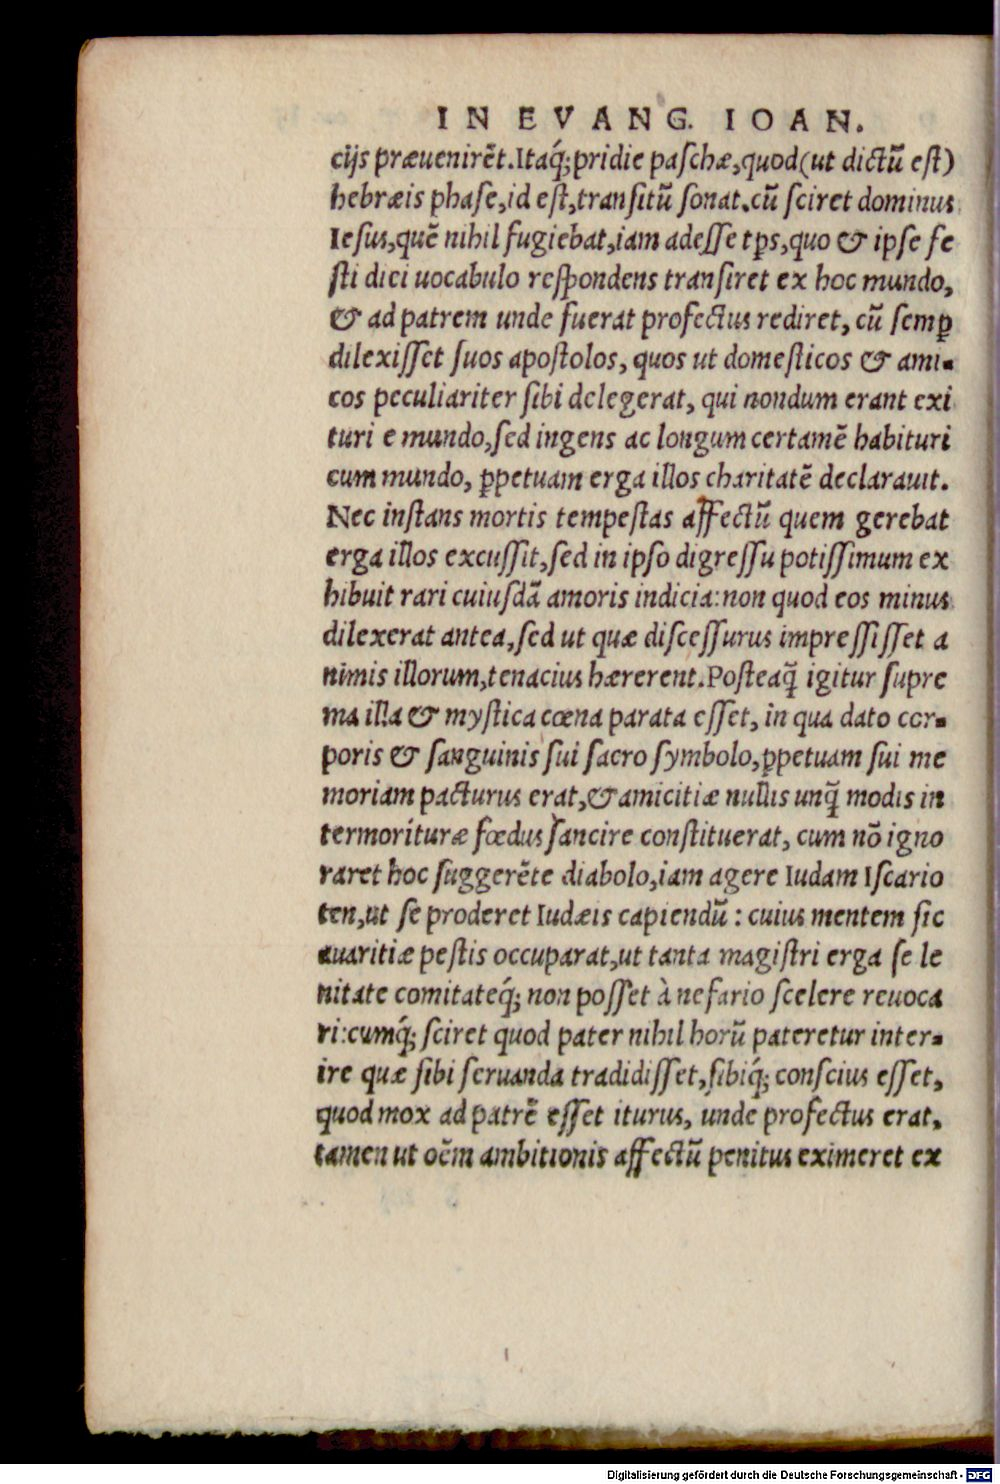 IN EVANG. IOAN.
cijs præuenirēt. Itaq́; pridie paſchæ, quod (ut dictū eſt)
hebræis phaſe, id eſt, tranſitū ſonat. cū ſciret dominus
Ieſus, quē nihil fugiebat, iam adeſſe tp̄s, quo & ipſe fe
ſti dici uocabulo reſpondens tranſiret ex hoc mundo,
& ad patrem unde fuerat profectus rediret, cū ſemꝑ
dilexiſſet ſuos apoſtolos, quos ut domeſticos & ami-
cos peculiariter ſibi delegerat, qui nondum erant exi
turi e mundo, ſed ingens ac longum certamē habituri
cum mundo, ꝑpetuam erga illos charitatē declarauit.
Nec inſtans mortis tempeſtas affectū quem gerebat
erga illos excuſſit, ſed in ipſo digreſſu potiſſimum ex
hibuit rari cuiuſdā amoris indicia: non quod eos minus
dilexerat antea, ſed ut quæ diſceſſurus impreſſiſſet a
nimis illorum, tenacius hærerent. Poſteaq̃ igitur ſupre
ma illa & myſtica cœna parata eſſet, in qua dato cor-
poris & ſanguinis ſui ſacro ſymbolo, ꝑpetuam ſui me
moriam pacturus erat, & amicitiæ nullis unq̃ modis in
termorituræ fœdus ſancire conſtituerat, cum nō igno
raret hoc ſuggerēte diabolo, iam agere Iudam Iſcario
ten, ut ſe proderet Iudæis capiendū: cuius mentem ſic
auaritiæ peſtis occuparat, ut tanta magiſtri erga ſe le
nitate comitateq́; non poſſet à nefario ſcelere reuoca
ri: cumq́; ſciret quod pater nihil horū pateretur inter-
ire quæ ſibi ſeruanda tradidiſſet, ſibiq́; conſcius eſſet,
quod mox ad patrē eſſet iturus, unde profectus erat,
tamen ut oēm ambitionis affectū penitus eximeret ex
Digitalisierung gefördert durch die Deutsche Forschungsgemeinschaft - DFG